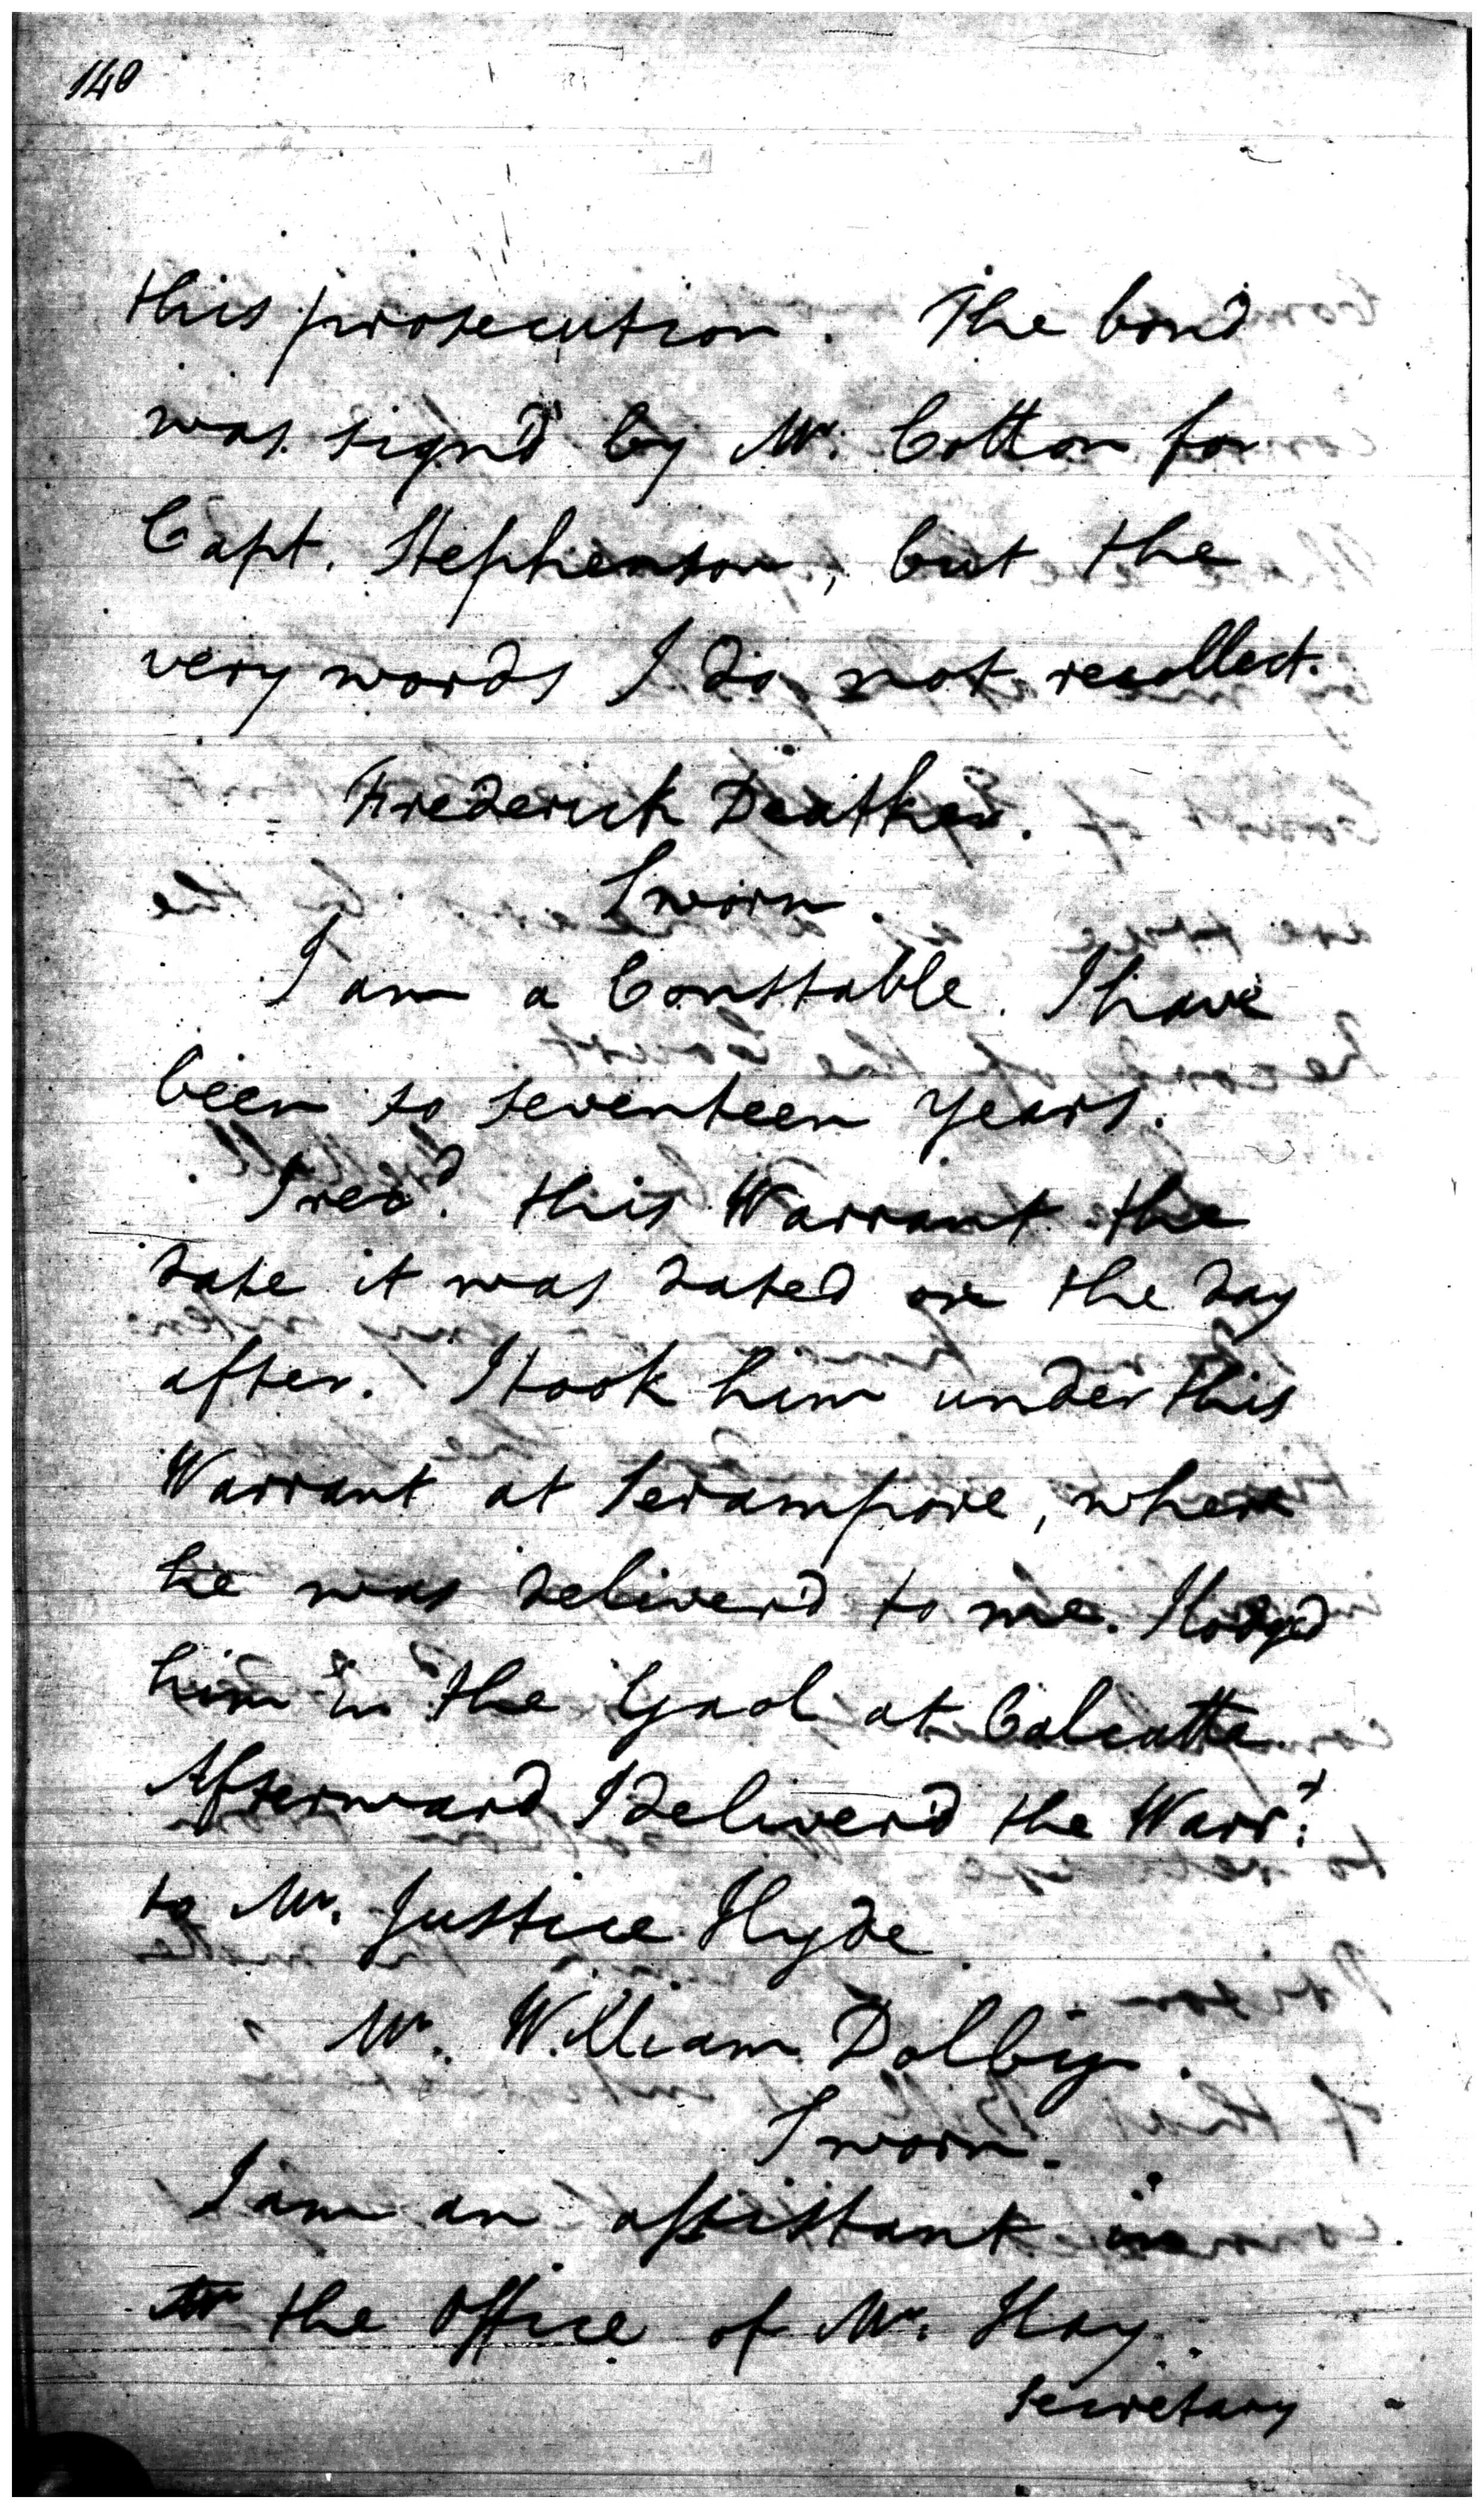 140
this prosecution. The bond
was signd by Mr. Cotton for
Capt. Stephenson, but the
very words I do not recollect.
Frederick Deatker.
Sworn.
I am a Constable. I have
been so seventeen years.
I recd. this Warrant the
date it was dated or the day
after. I took him under this
Warrant at Serampore, where
he was deliver'd to me. I lodged
him in the Gaol at Calcutta.
Afterward I deliver'd the Warrt.
to Mr. Justice Hyde.
Mr. William Dolby.
Sworn.
I am an assistant in
the Office of Mr. Hay.
Secretary